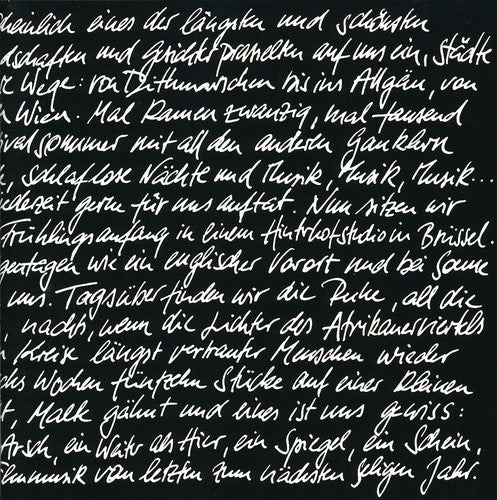 heinlich eines der längsten und schönsten
dschaften und Gesichter prasselten auf uns ein, Städte
Wege: von Dithmarschen bis ins Allgäu, von
Wien. Mal kamen zwanzig, mal tausend
ivalsommer mit all den anderen Gauklern
, schlaflose Nächte und Musik, Musik, Musik...
ederzeit gerne für uns auftat. Nun sitzen wir
Frühlingsanfang in einem Hinterhofstudio in Brüssel.
getagen wie ein englischer Vorort und bei Sonne
uns. Tagsüber finden wir die Ruhe, all die
, nachts, wenn die Lichter des Afrikanerviertels
Kreise längst vertrauter Menschen wieder
chs Wochen fünfzehn Stücke auf einer kleinen
t, Malk gähnt und eines ist uns gewiss:
Arsch, ein Weiter als Hier, ein Spiegel, ein Schein,
lenmusik vom letzten zum nächsten seligen Jahr.